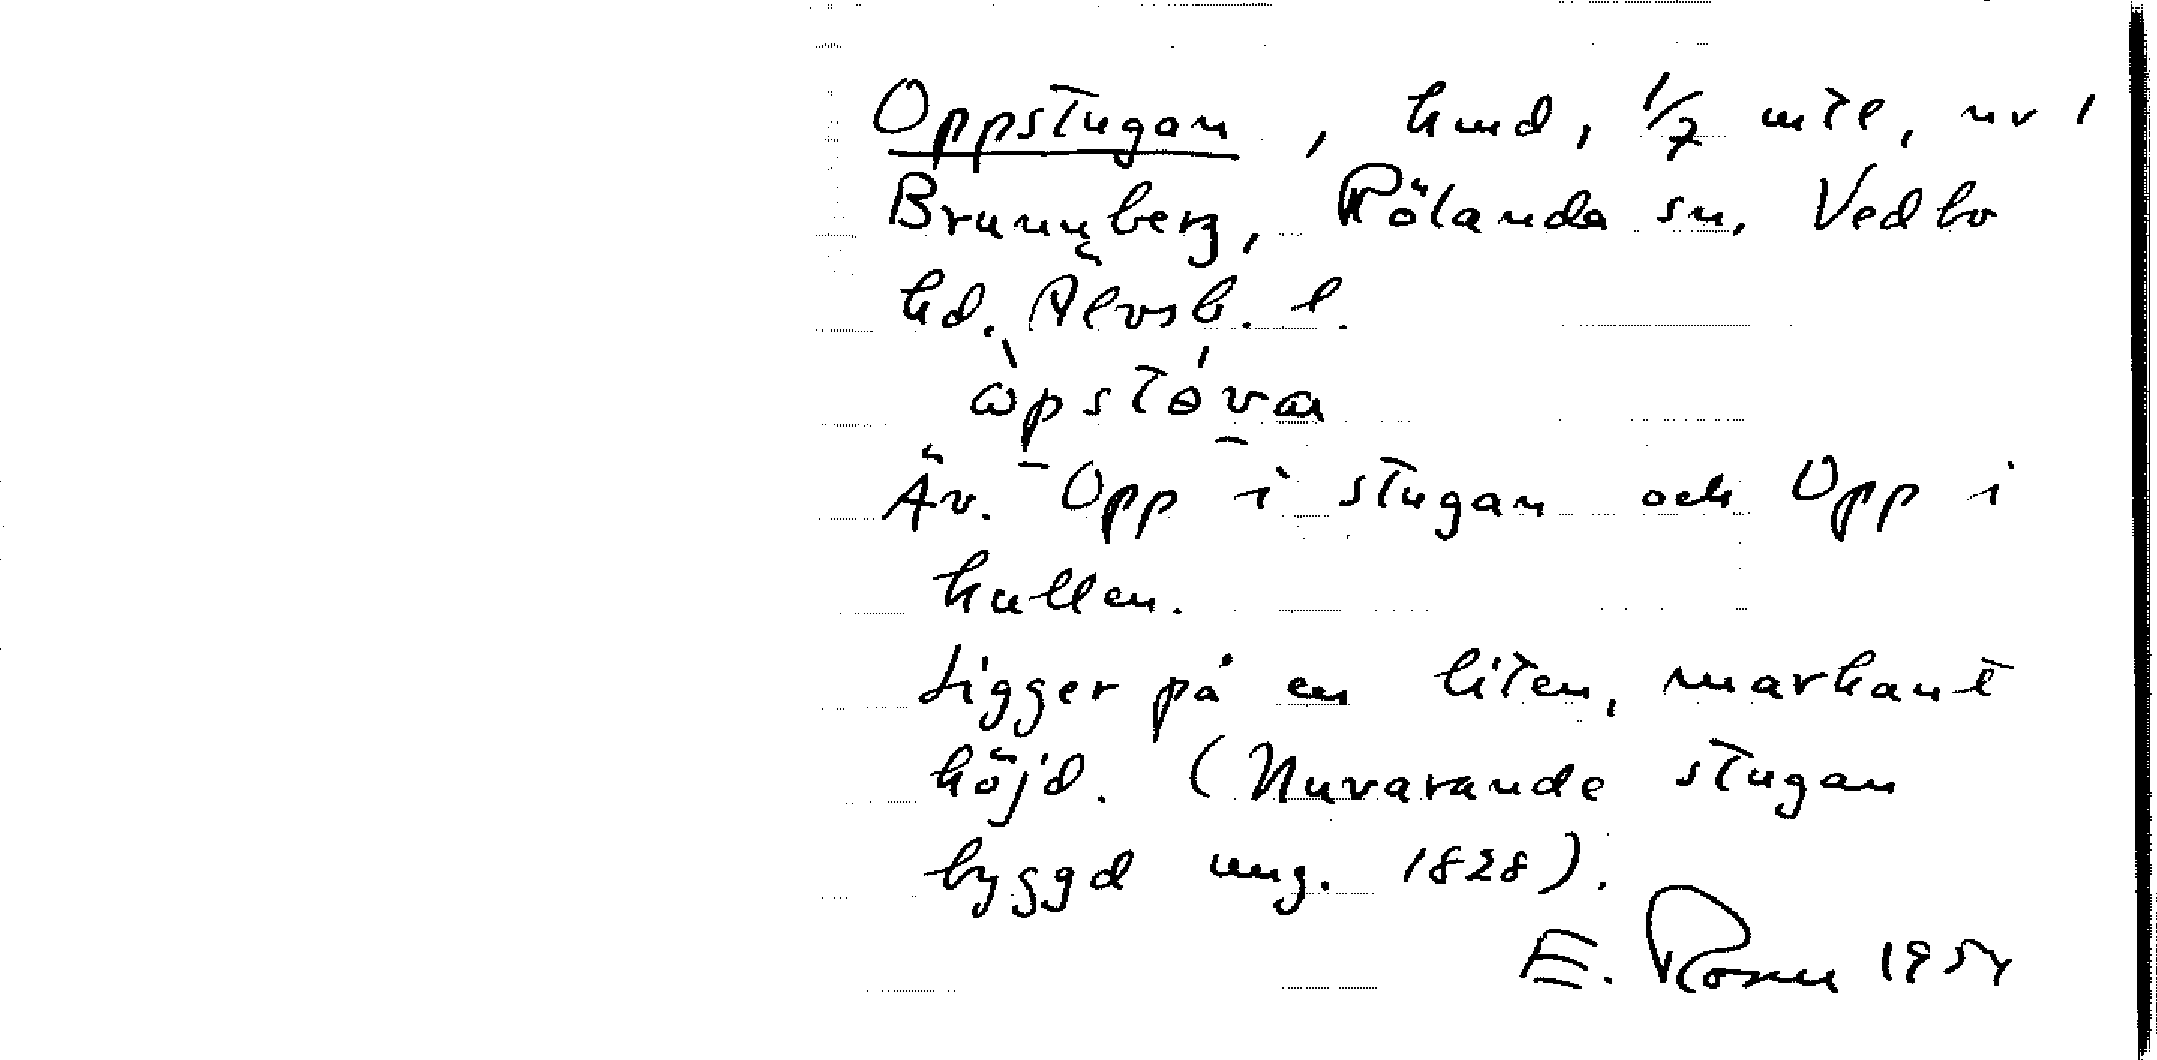 Oppstugan, hmd, 1/7 mtl, nr 1
Brunnberg, Rölanda sn, Vedbo
hd. Älvsb. l.
òpstóva
Äv. Opp i stugan och Opp i
kullen.
Ligger på en liten, markant
höjd. (Nuvarande stugan
byggd ung. 1828).
E. Rosen 1954